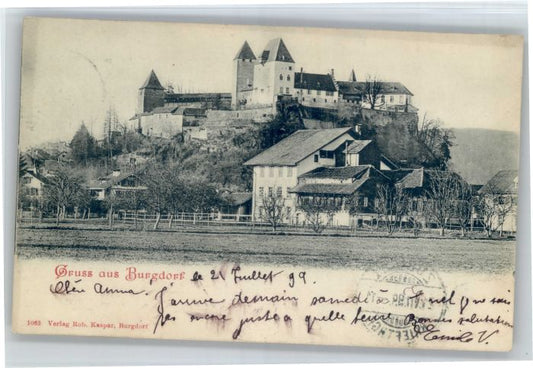 Gruss aus Burgdorf le 21 Juillet 99.
Chère Anna! J'arrive demain samedi soir et ne sais
pas encore juste à quelle heure. Bonnes salutations
Emile V.
1063 Verlag Rob. Kaspar, Burgdorf